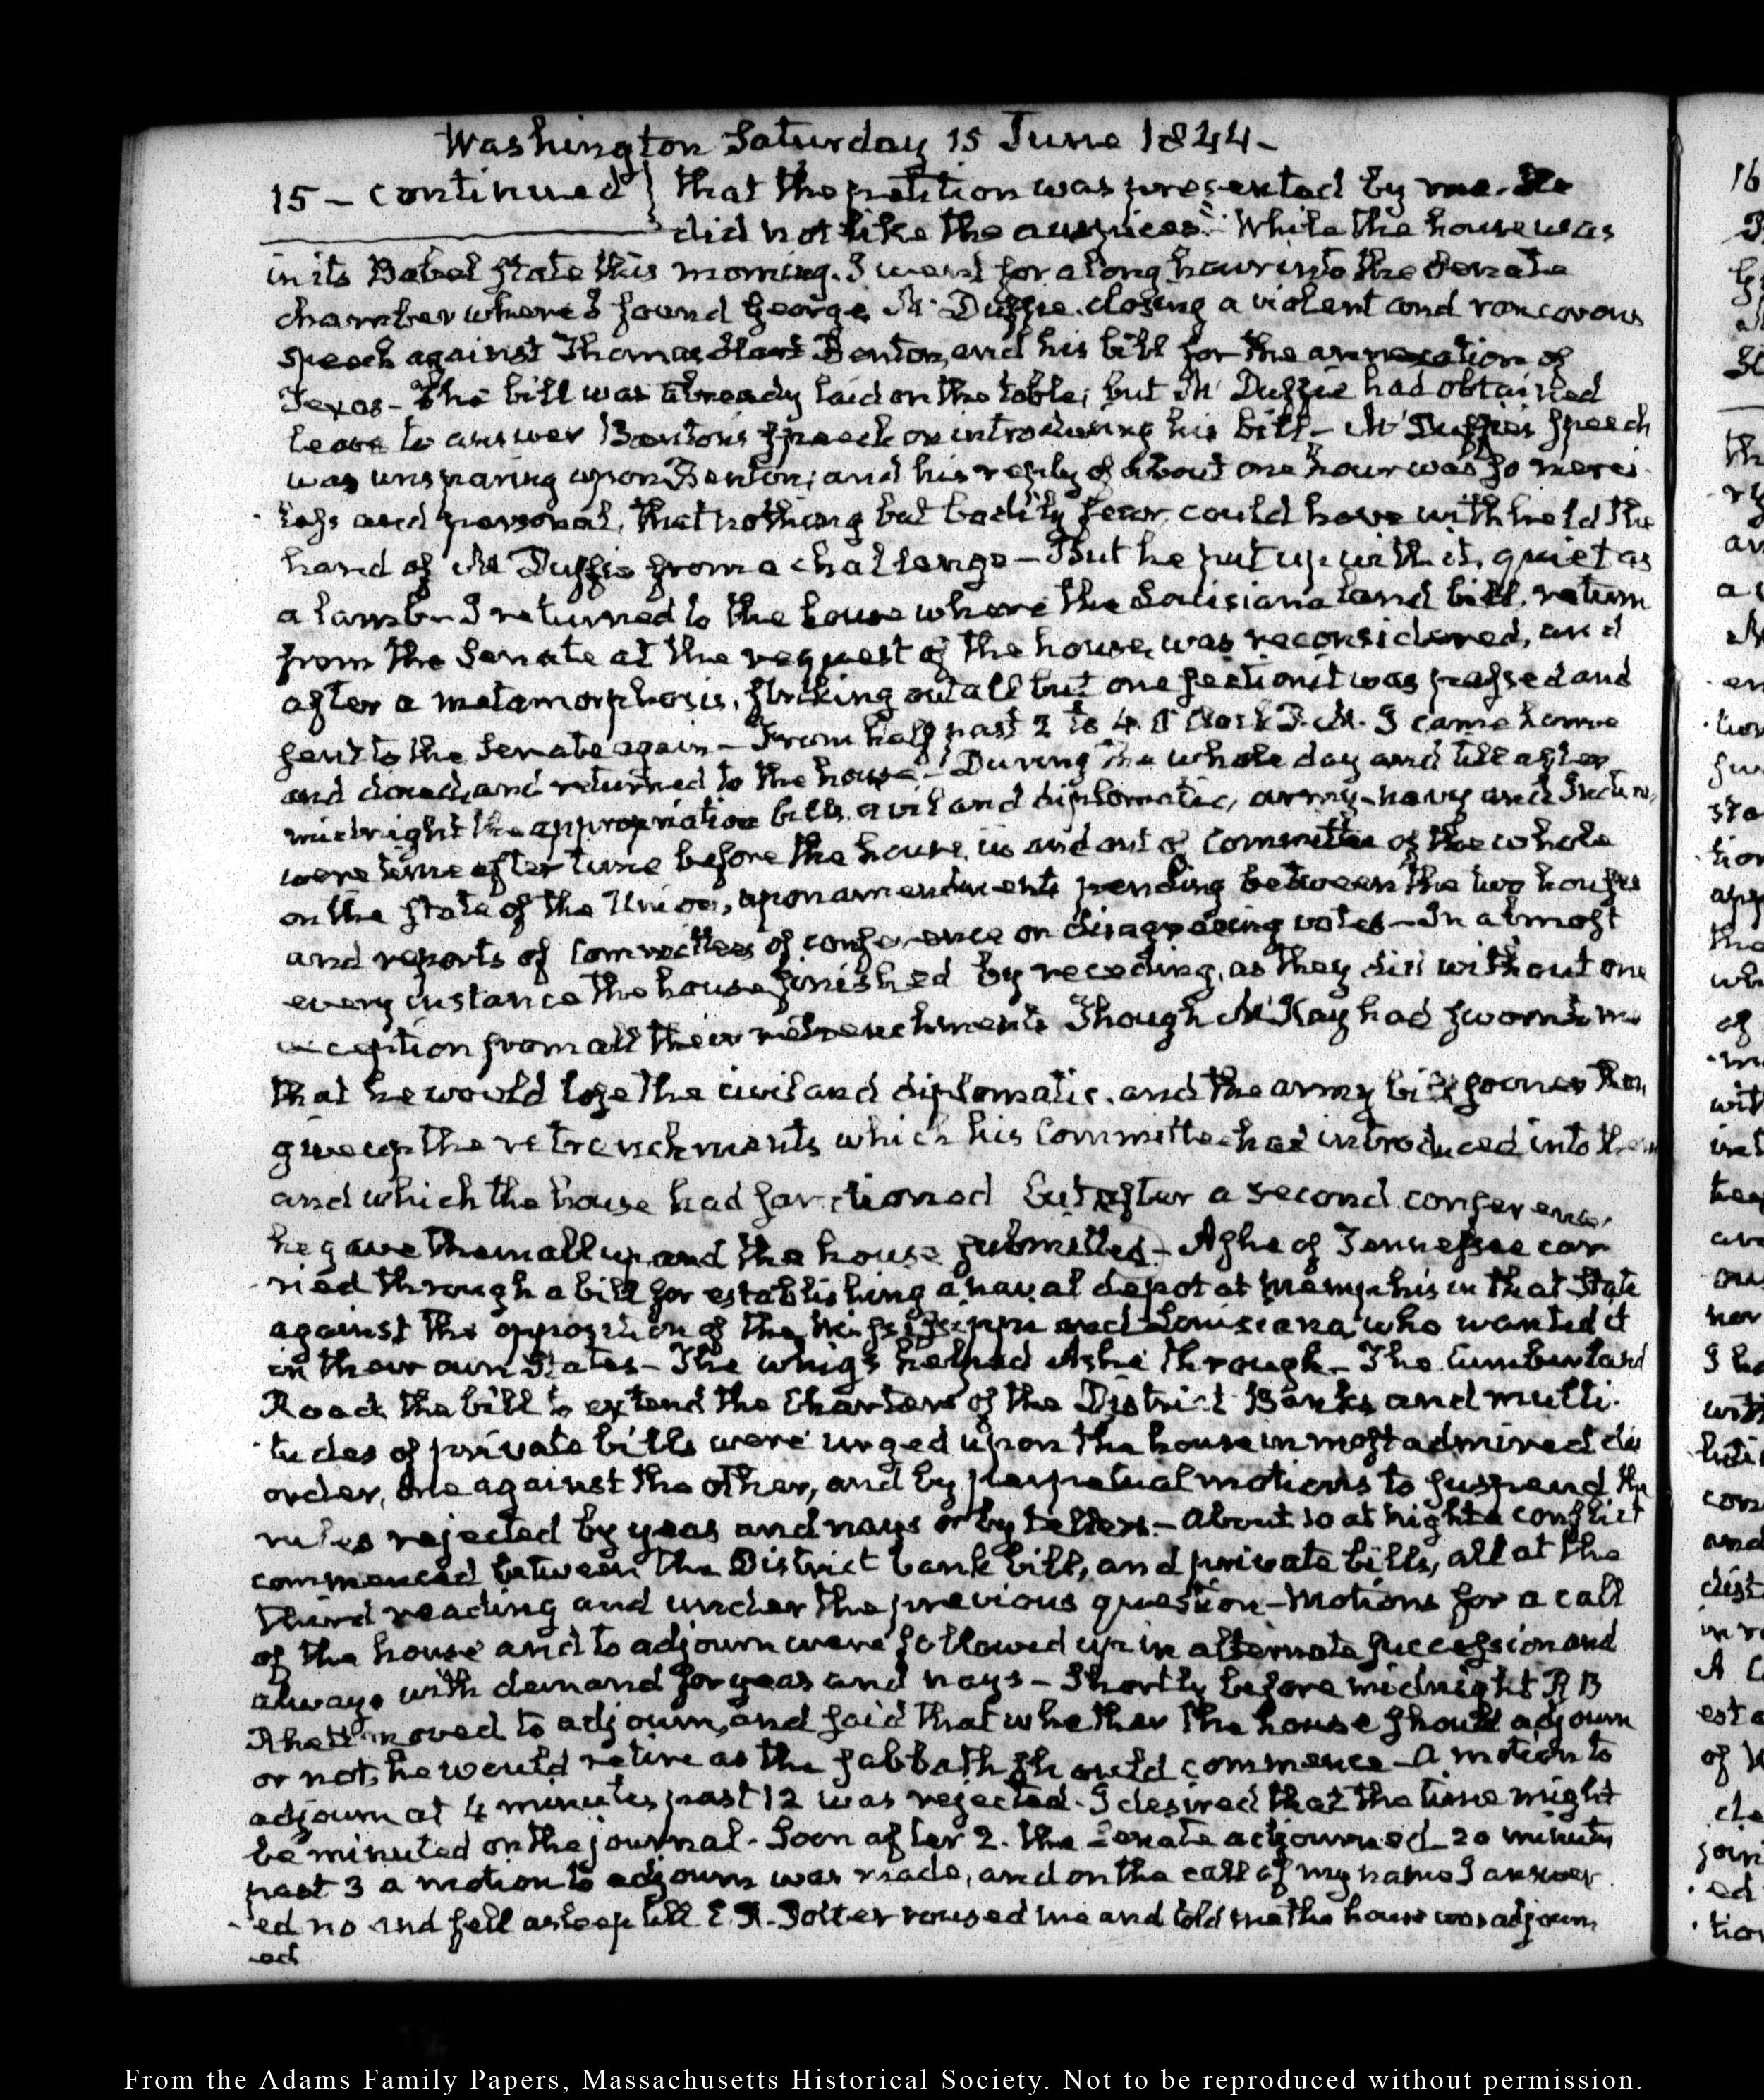 Washington Saturday 15 June 1844–
15 – continued } that the petition was presented by me. He
did not like the auspices. While the house was
in its Babel state this morning. I went for a long hour into the Senate
chamber where I found George McDuffie closing a violent and rancorous
speech against Thomas Hart Benton, and his bill for the annexation of
Texas – The bill was already laid on the table; but McDuffie had obtained
leave to answer Benton's speech on introducing his bill – McDuffie's speech
was unsparing upon Benton; and his reply of about one hour was so merci
less and personal, that nothing but bodily fear could have withheld the
hand of McDuffie from a challenge – But he put up with it, quiet as
a lamb – I returned to the house where the Louisiana land bill, return
from the Senate at the request of the house, was reconsidered, and
after a metamorphosis, striking out all but one section it was passed and
sent to the Senate again – From half past 2 to 4 O'Clock P.M. I came home
and dined, and returned to the house – During the whole day and till after
midnight the appropriation bills, civil and diplomatic, army, navy and Indian,
were time after time before the house, in and out of Committee of the whole
on the state of the Union, upon amendments pending between the two houses
and reports of Committees of conference on disagreeing votes – In almost
every instance the house finished by receding, as they did without one
exception from all their retrenchments Though McKay had sworn to me
that he would lose the civil and diplomatic, and the army bill sooner than
give up the retrenchments which his Committee had introduced into them
and which the house had sanctioned But after a second conference,
he gave them all up, and the house submitted – Ashe of Tennessee car
ried through a bill for establishing a naval depot at Memphis in that State
against the opposition of the Mississippi and Louisiana who wanted it
in their own States – The whigs helped Ashe through – The Cumberland
Road the bill to extend the Charters of the District Banks and multi
tudes of private bills were urged upon the house in most admired dis
order, one against the other, and by perpetual motions to suspend the
rules rejected by yeas and nays or by tellers – About 10 at night a conflict
commenced between the District bank bill, and private bills, all at the
third reading and under the previous question – Motions for a call
of the house and to adjourn were followed up in alternate succession and
always with demand for yeas and nays – Shortly before midnight R B
Rhett moved to adjourn, and said that whether the house should adjourn
or not, he would retire as the sabbath should commence – A motion to
adjourn at 4 minutes past 12 was rejected. I desired that the time might
be minuted on the journal. Soon after 2. the Senate adjourned – 20 minutes
past 3 a motion to adjourn was made, and on the call of my name I answer
ed no and fell asleep till E. R. Potter roused me and told me the house was adjourn
ed
From the Adams Family Papers, Massachusetts Historical Society. Not to be reproduced without permission.